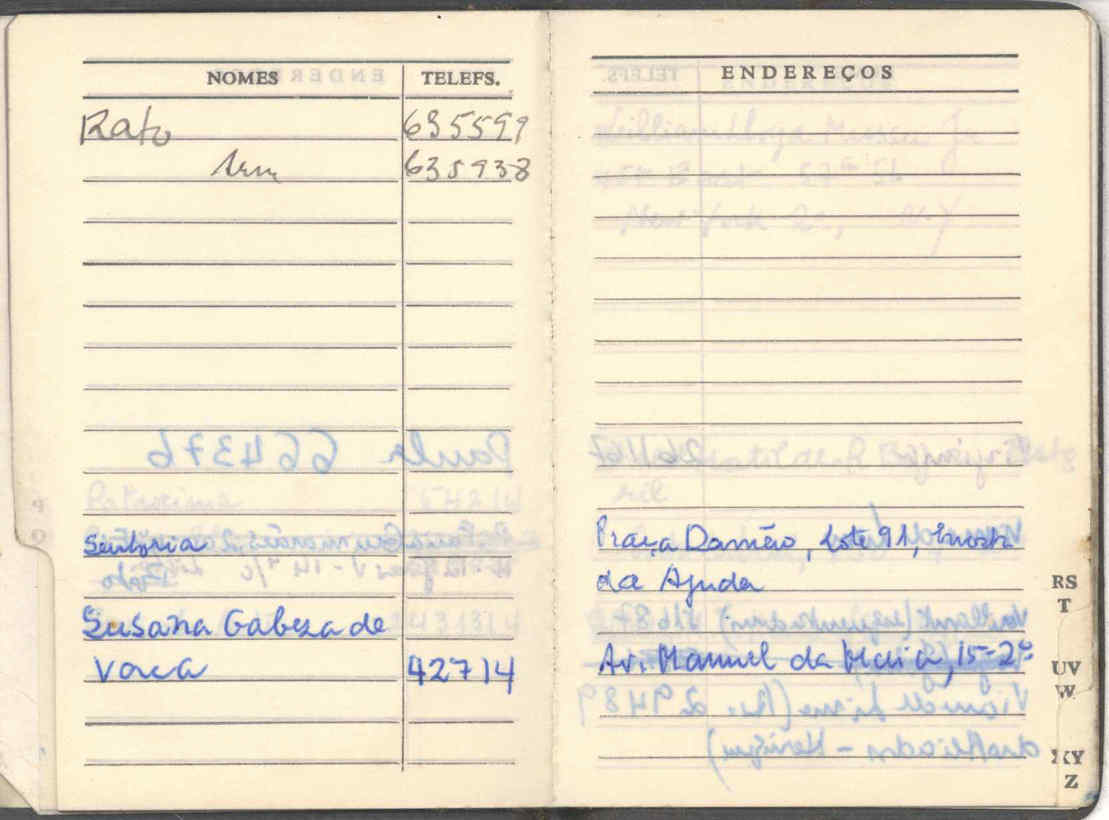 NOMES TELEFS.
Rato 635599
635938
Santoria
Susana Cabeza de
Vaca 42714
ENDEREÇOS
Praça Damião, Lote 91,
da Ajuda
Av. Manuel da Maia, 15-2º
RS
T
UV
W
XY
Z